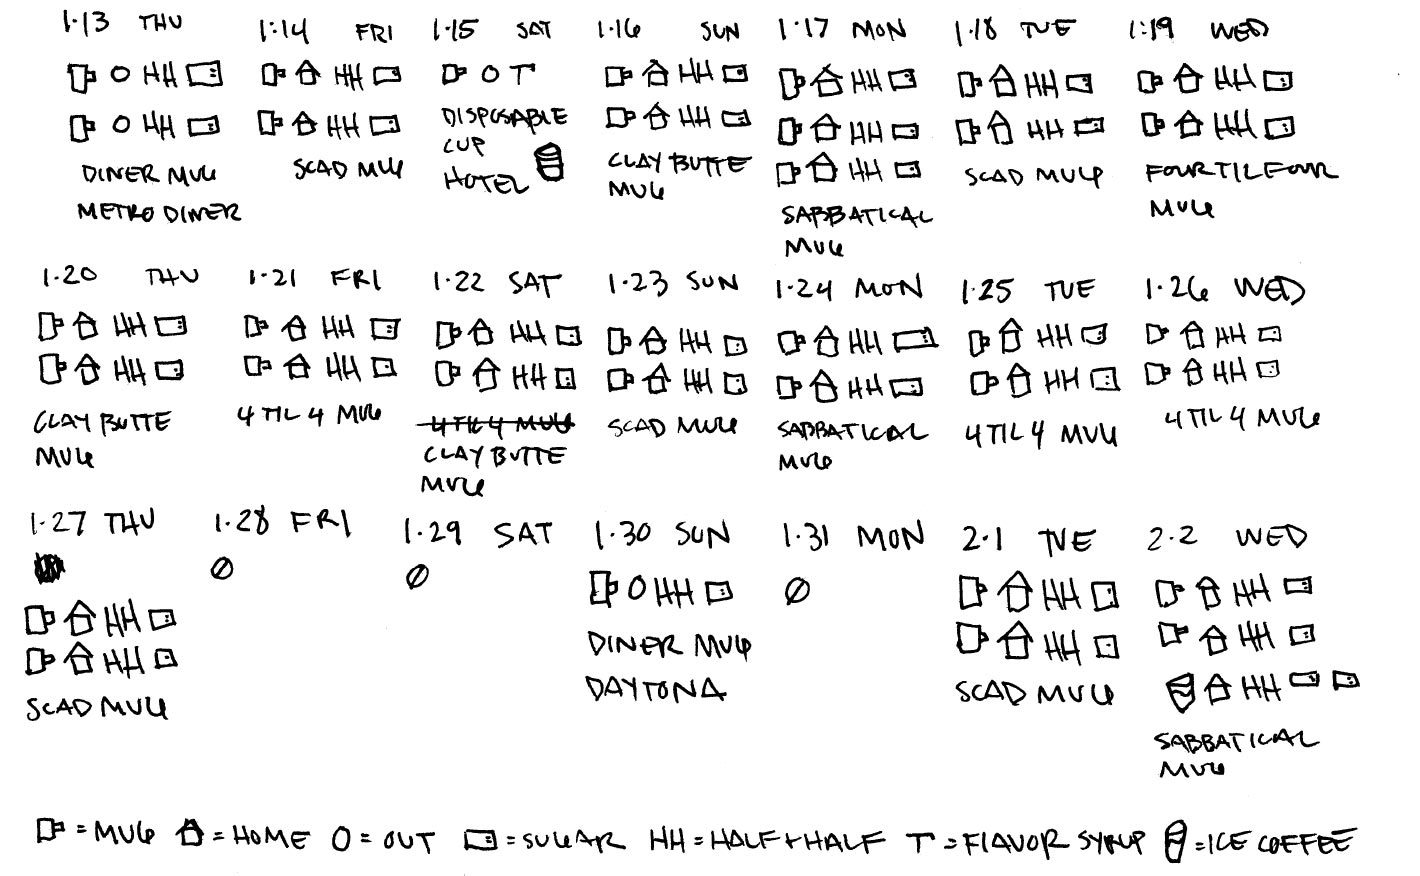 1.13 THU 1:14 FRI 1.15 SAT 1.16 SUN 1.17 MON 1.18 TUE 1:19 WED
O HH HH O T HH HH HH HH
O HH HH DISPOSABLE HH HH HH HH
DINER MUG SCAD MUG CUP CLAY BUTTE HH SCAD MUG FOUR TIL FOUR
METRO DINER HOTEL MUG SABBATICAL MUG
MUG
1.20 THU 1.21 FRI 1.22 SAT 1.23 SUN 1.24 MON 1.25 TUE 1.26 WED
HH HH HH HH HH HH HH
HH HH HH HH HH HH HH
CLAY BUTTE 4 TIL 4 MUG 4 TIL 4 MUG SCAD MUG SABBATICAL 4 TIL 4 MUG 4 TIL 4 MUG
MUG CLAY BUTTE MUG
MUG
1.27 THU 1.28 FRI 1.29 SAT 1.30 SUN 1.31 MON 2.1 TUE 2.2 WED
Ø Ø O HH Ø HH HH
HH DINER MUG HH HH
HH DAYTONA SCAD MUG HH
SCAD MUG SABBATICAL
MUG
= MUG = HOME O = OUT = SUGAR HH = HALF + HALF T = FLAVOR SYRUP = ICE COFFEE